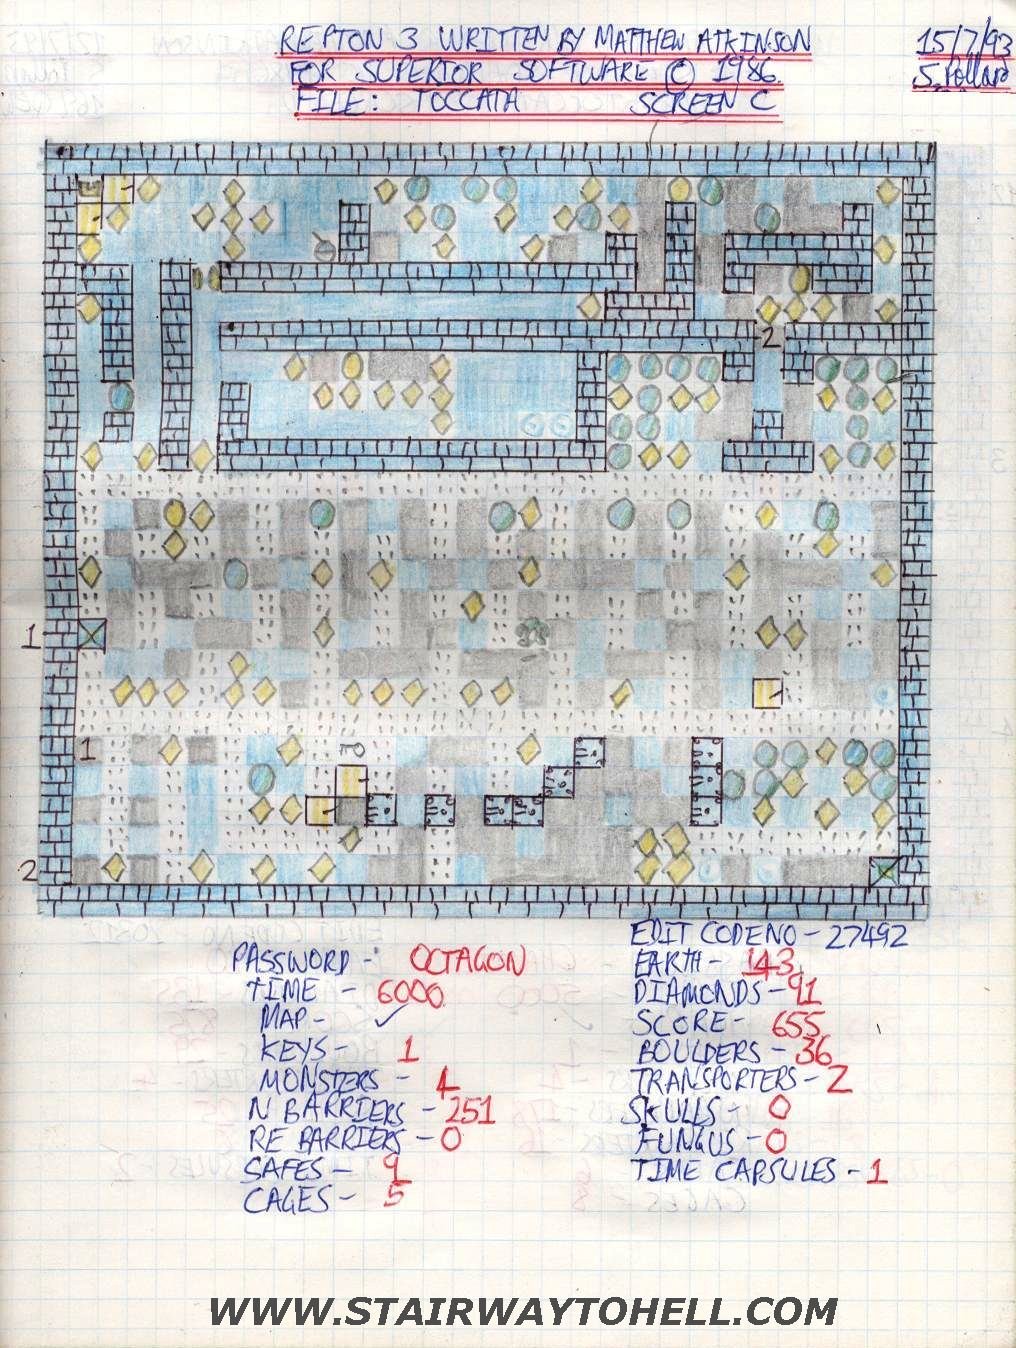 REPTON 3 WRITTEN BY MATTHEW ATKINSON
FOR SUPERIOR SOFTWARE © 1986.
FILE: TOCCATA SCREEN C
15/7/93
S. Pollard
2
1
1
2
PASSWORD - OCTAGON
TIME - 6000
MAP - ✓
KEYS - 1
MONSTERS - 4
N BARRIERS - 251
RE BARRIERS - 0
SAFES - 9
CAGES - 5
EDIT CODE NO - 27492
EARTH - 143
DIAMONDS - 91
SCORE - 655
BOULDERS - 36
TRANSPORTERS - 2
SKULLS - 0
FUNGUS - 0
TIME CAPSULES - 1
WWW.STAIRWAYTOHELL.COM